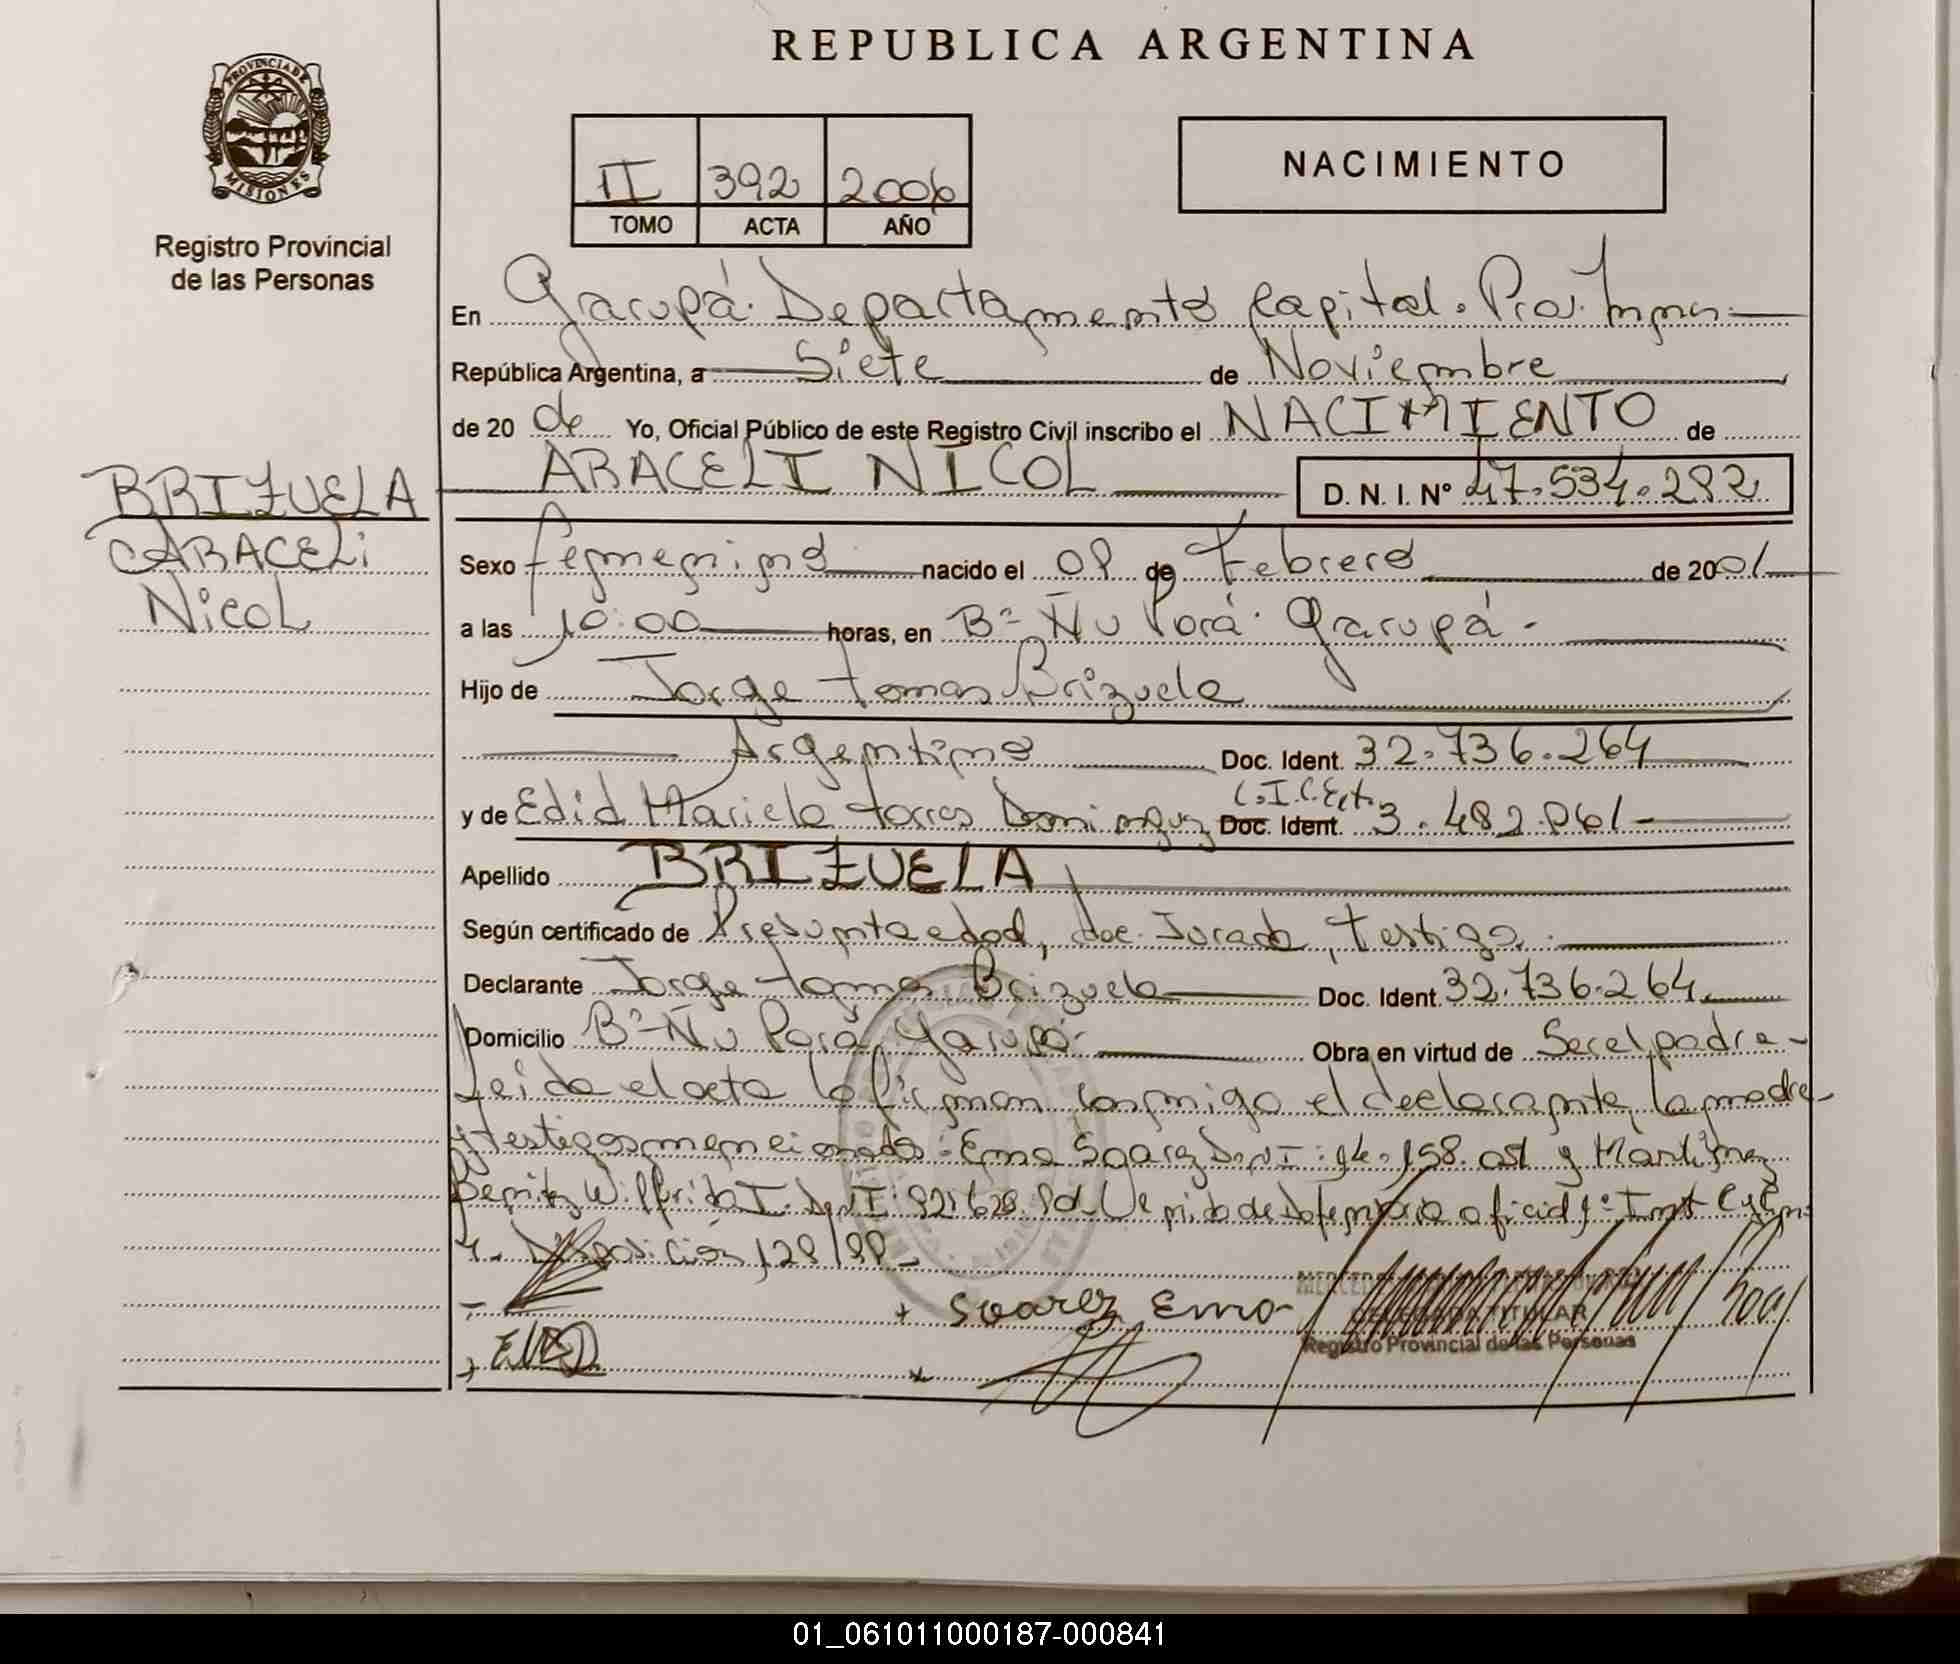 REPUBLICA ARGENTINA
PROVINCIA DE
MISIONES
Registro Provincial
de las Personas
II 392 2006
TOMO ACTA AÑO
NACIMIENTO
En Garupá. Departamento Capital. Prov. Mnes
República Argentina, a Siete de Noviembre
de 20 06 Yo, Oficial Público de este Registro Civil inscribo el NACIMIENTO de
ARACELI NICOL D. N. I. Nº 47.534.292
BRIZUELA
ARACELi
NicoL
Sexo femenino nacido el 08 de Febrero de 2001
a las 10:00 horas, en Bº Ñu Porá. Garupá.
Hijo de Jorge Tomas Brizuela
Argentino Doc. Ident. 32.736.264
y de Edid Mariela Torres Dominguez Doc. Ident. 3.482.061
Apellido BRIZUELA
Según certificado de Presunta edad, dec. Jurada, testigo.
Declarante Jorge Tomas Brizuela Doc. Ident. 32.736.264
Domicilio Bº Ñu Porá, Garupá. Obra en virtud de Ser el padre
Leida el acta la firman conmigo el declarante, la madre
y testigos mencionados: Ema Suarez D.N.I: 94.158.051 y Martinez
Benitez Wilfrido I. D.N.I: 92.628.
Disposición 128/98
Suarez Ema
DELEGADA TITULAR
Registro Provincial de las Personas
01_061011000187-000841